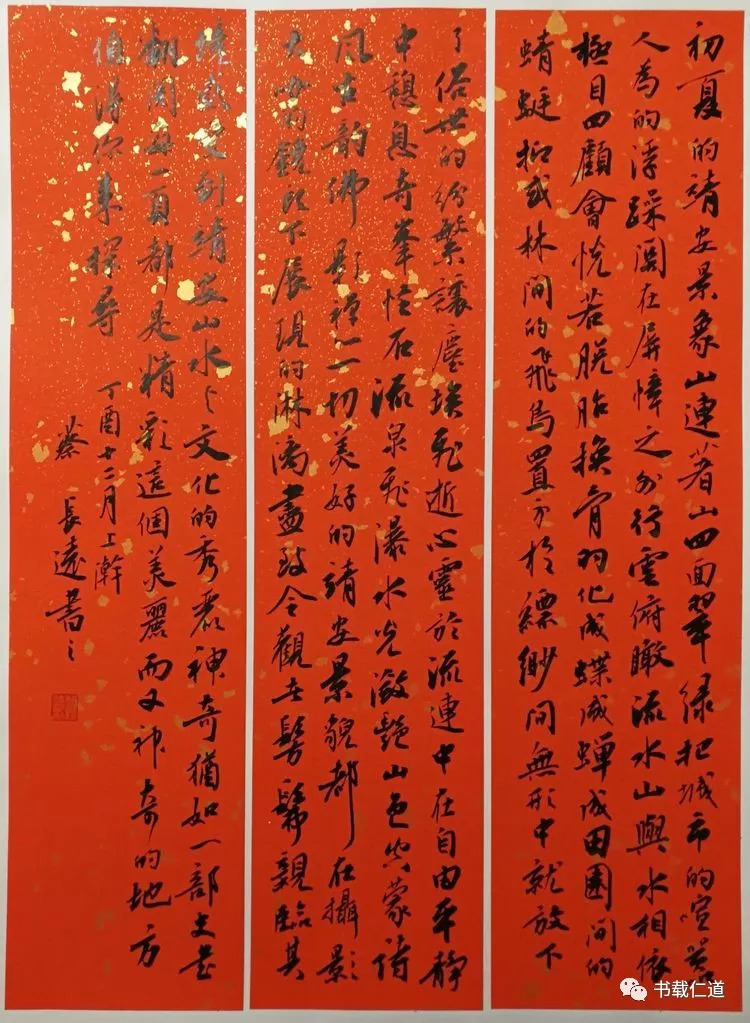 初夏的靖安景象山連着山四面翠绿把城市的喧嚣
人為的浮躁関在屏幛之外行雲俯瞰流水山與水相依
極目四顧會恍若脱胎換骨羽化成蝶成蝉成田園間的
蜻蜓抑或林間的飛鳥置身於縹緲間無形中就放下
了俗世的紛繁讓塵埃飛逝心靈於流連中在自由平静
中憩息奇峯怪石流泉飛瀑水光瀲艷山色空蒙诗
風古韵佛影禅一切美好的靖安景貌都在攝影
大師的鏡頭下展現的淋漓盡致令觀者髣髴親臨其
境感受到靖安山水之文化的秀丽神奇猶如一部史書
翻阅每一頁都是精彩這個美麗而又神奇的地方
值得你来探尋
丁酉十二月上澣
蔡長遠書之
书载仁道